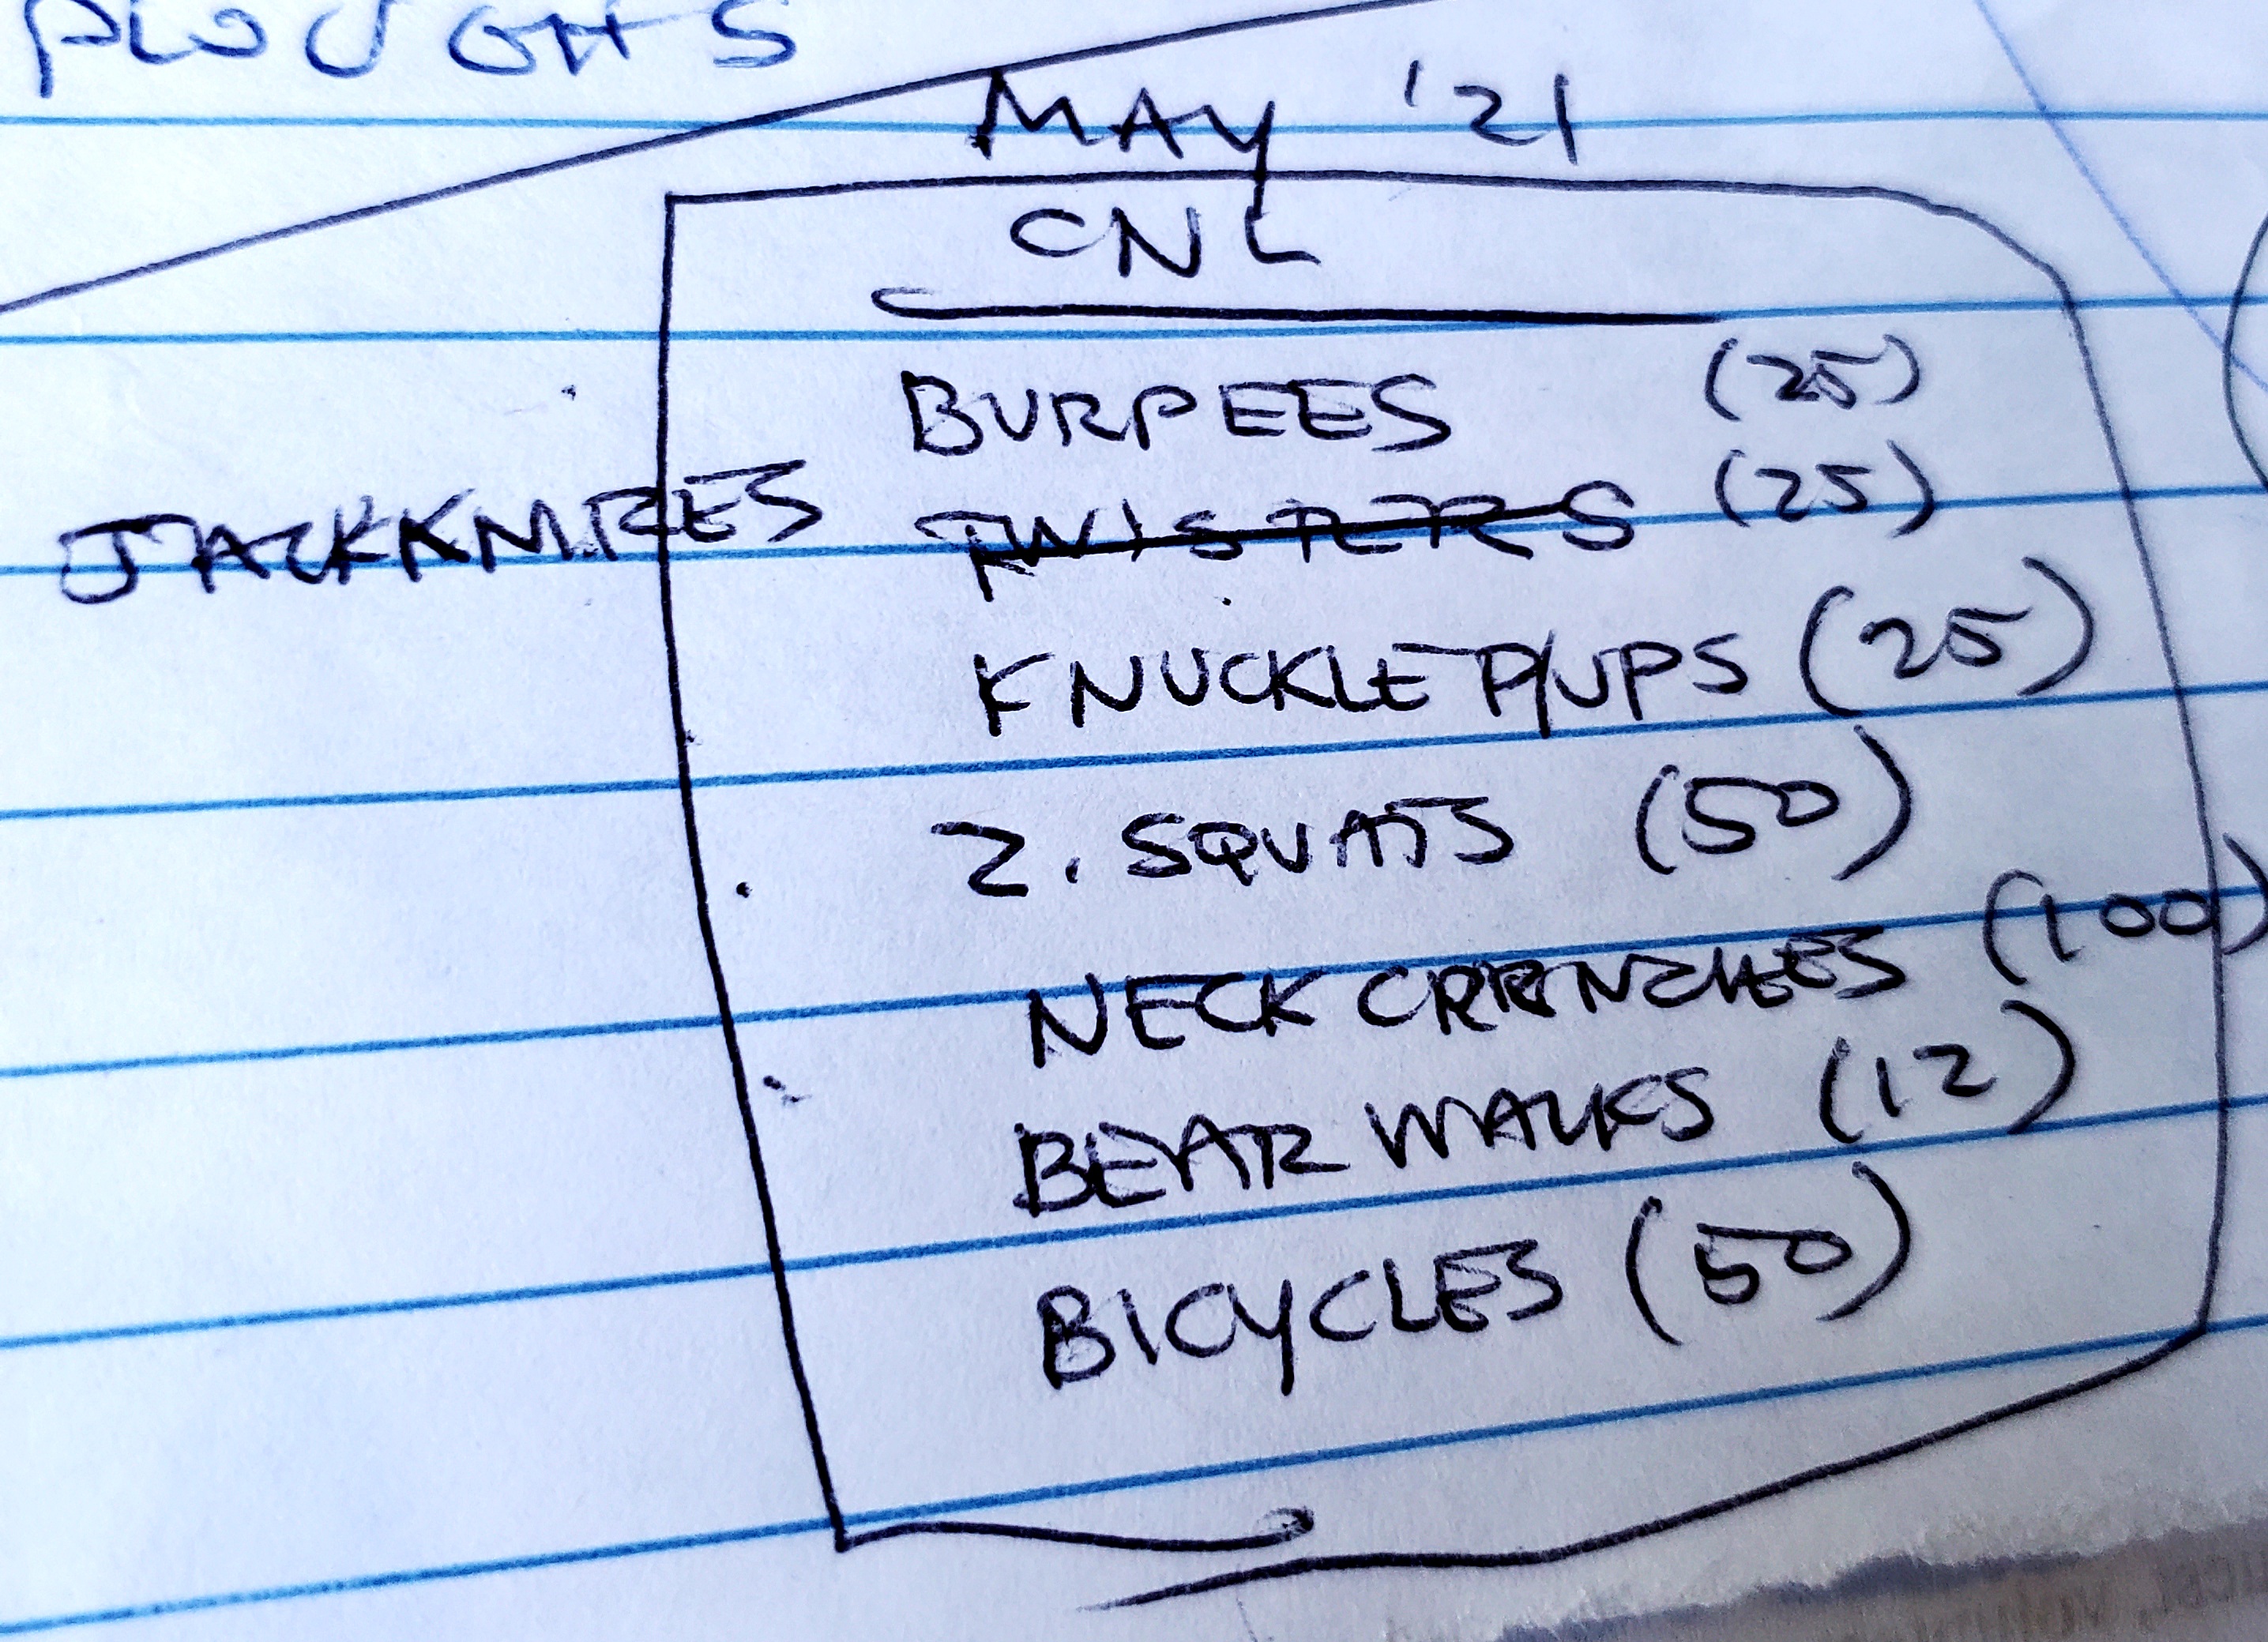 PLOUGHS
MAY '21
CNL
BURPEES (25)
JACKKNIFES TWISTERS (25)
KNUCKLE P/UPS (25)
2. SQUATS (50)
NECK CRUNCHES (100)
BEAR WALKS (12)
BICYCLES (50)